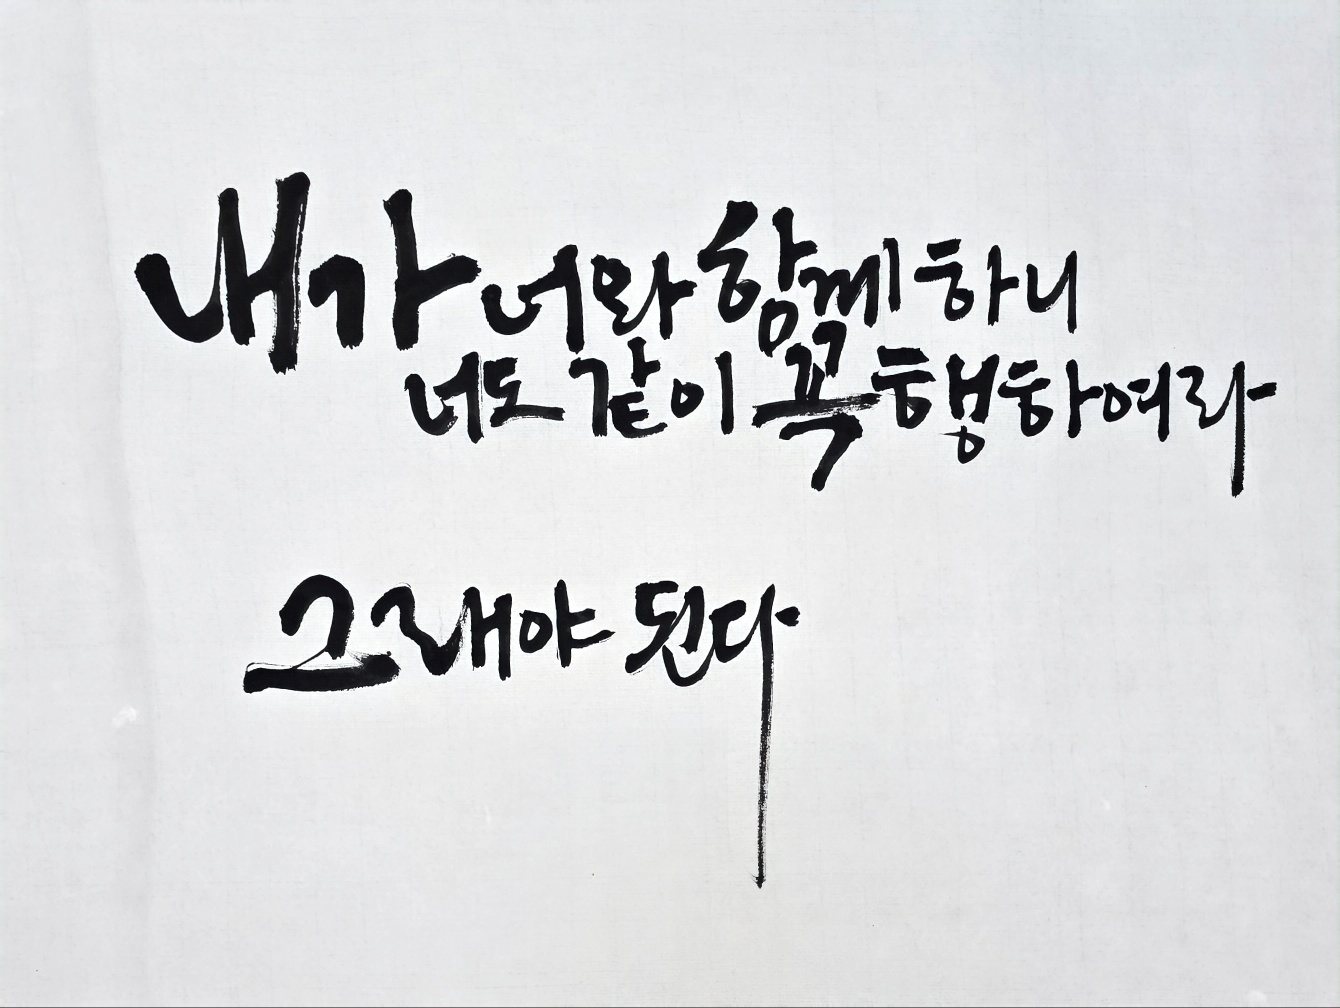 내가 너와 함께 하니
너도 같이 꼭 행하여라
그래야 된다